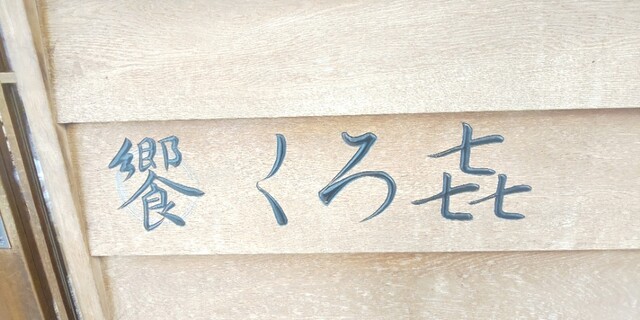 饗くろ㐂